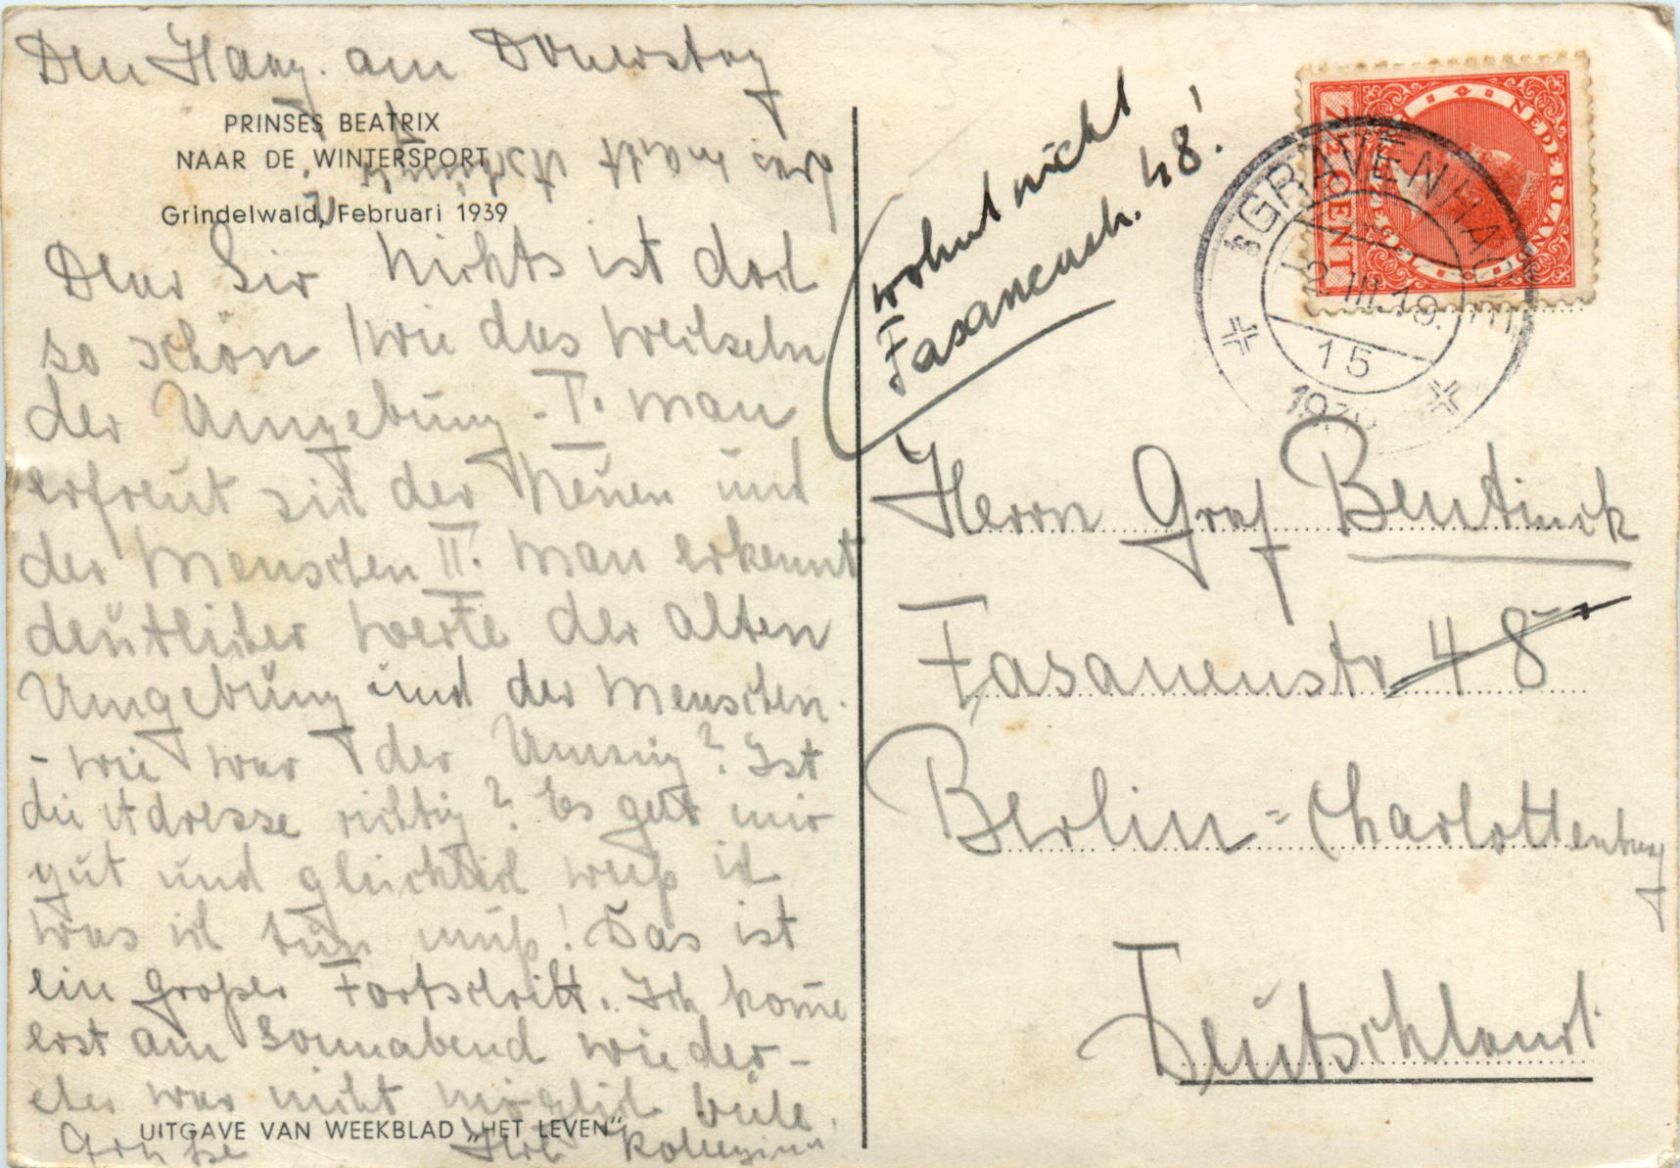 Den Haag. am Donerstag
PRINSES BEATRIX
NAAR DE WINTERSPORT
Grindelwald, Februari 1939
Dear Sir Nichts ist doch
so schön wie das Wechseln
der Umgebung - I. man
erfreut sich der Neuen und
der Menschen II. man erkennt
deutlicher Werte der alten
Umgebung und der Menschen.
- Wie war der Umzug? Ist
die Adresse richtig? Es geht mir
gut und weiß ich
was ich tun muß! Das ist
ein großer Fortschritt. Ich kome
erst am Sonnabend wieder -
eher war nicht möglich viele
Grüße Ihre
UITGAVE VAN WEEKBLAD „HET LEVEN"
wohnt nicht
Fasanenstr. 48!
NEDERLAND
7½ CENT
'SGRAVENHAGE
2 III.19.
15
193
Herrn Graf Bentinck
Fasanenstr 48
Berlin=Charlottenburg
Deutschland